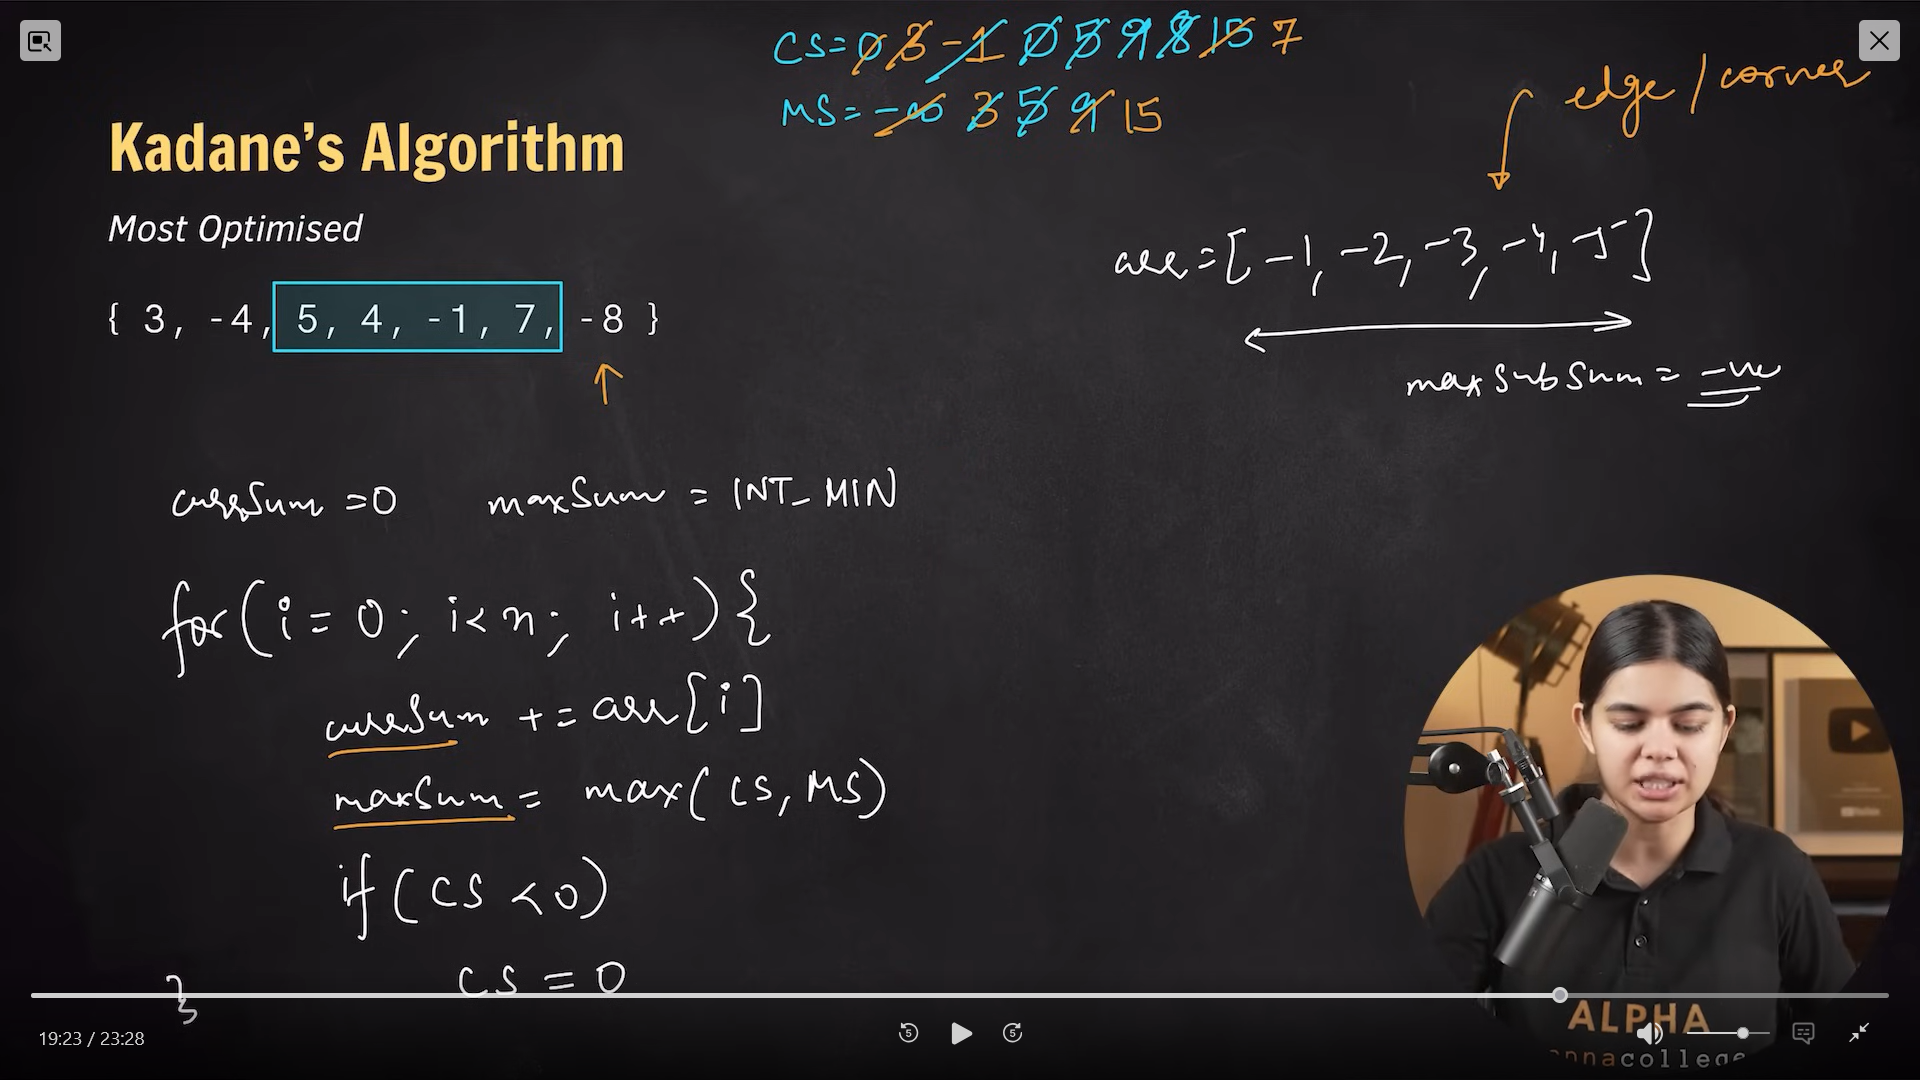 CS = 0 3 -1 0 5 9 8 15 7
MS = -∞ 3 5 9 15
edge / corner
Kadane's Algorithm
Most Optimised
arr = [ -1, -2, -3, -4, -5 ]
{ 3, -4, 5, 4, -1, 7, -8 }
maxSubSum = -ve
currSum = 0 maxSum = INT_MIN
for ( i = 0; i < n; i++ ) {
currSum += arr[i]
maxSum = max( CS, MS )
if ( CS < 0 )
CS = 0
}
ALPHA
19:23 / 23:28
5
5